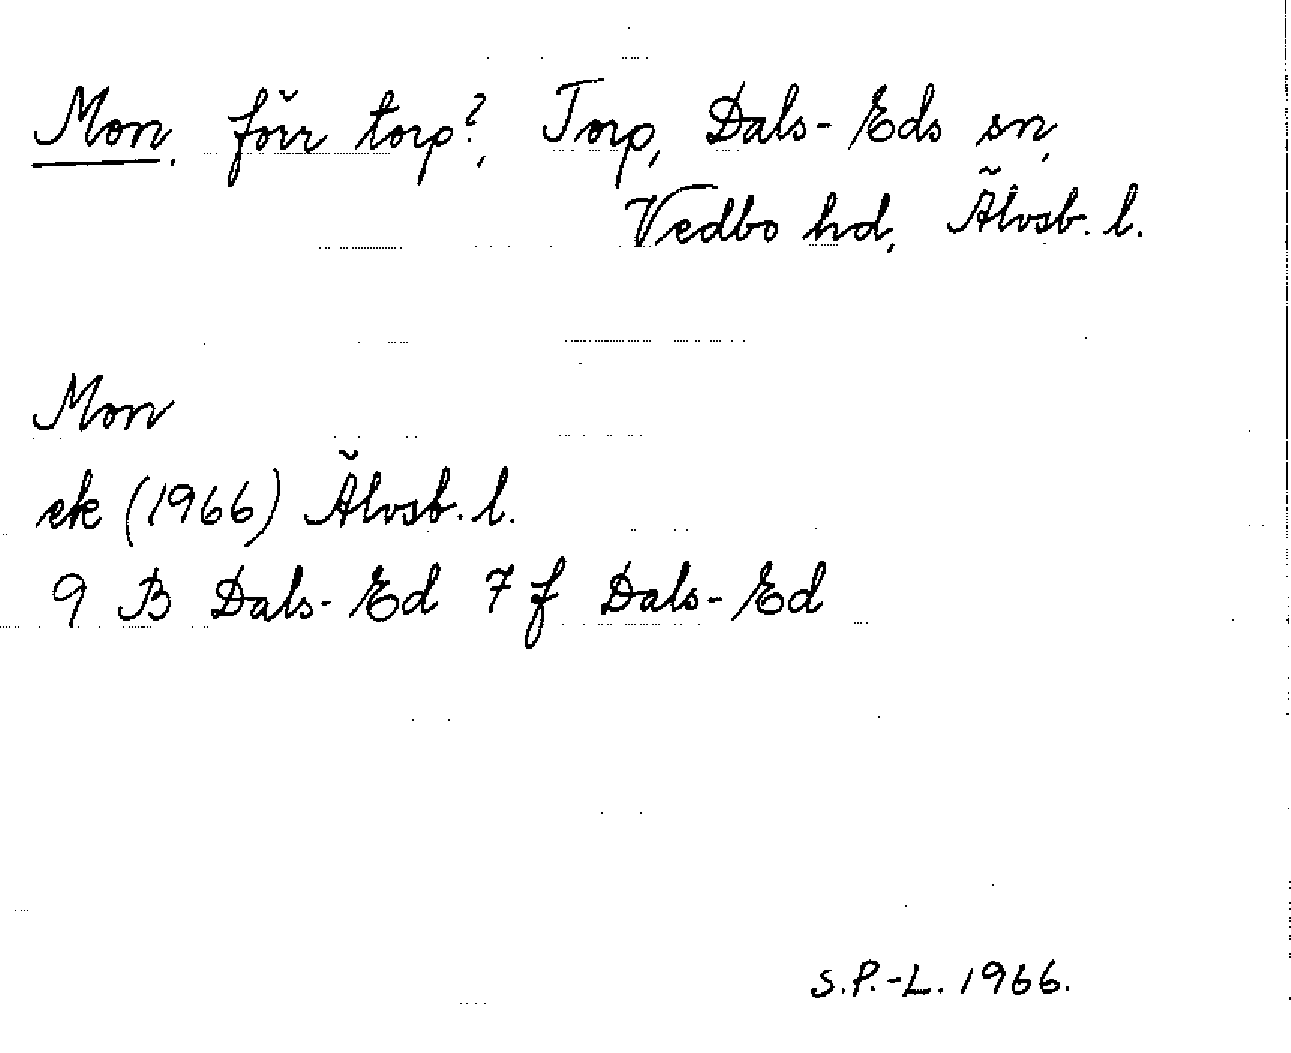 Mon, förr torp?, Torp, Dals-Eds sn,
Vedbo hd, Älvsb. l.
Mon
ek (1966) Älvsb. l.
9 B Dals-Ed 7 f Dals-Ed
S.P.-L. 1966.